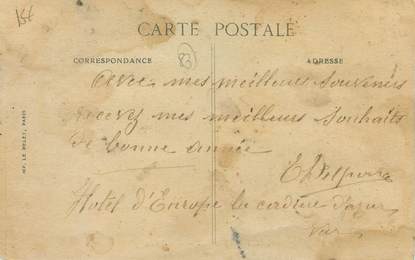 15€
CARTE POSTALE
CORRESPONDANCE
83
ADRESSE
Avec mes meilleurs souvenirs
recevez mes meilleurs souhaits
de bonne année
Hotel d'Europe la cordiere d'azur
Var
IMP. LE DELEY, PARIS